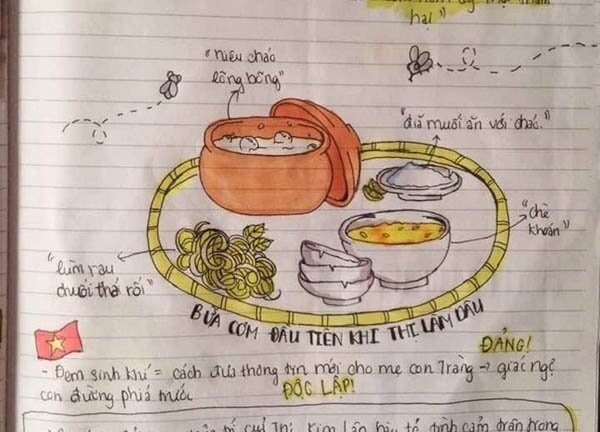 hại
"niêu cháo
lõng bõng"
"đĩa muối ăn với cháo."
"chè
khoán"
"lùm rau
chuối thái rối"
BỮA CƠM ĐẦU TIÊN KHI THỊ LÀM DÂU
ĐẢNG!
- Đem sinh khí = cách đưa thông tin mới cho mẹ con Tràng → giác ngộ
con đường phía trước
ĐỘC LẬP!
Kim Lân tình cảm trân trọng